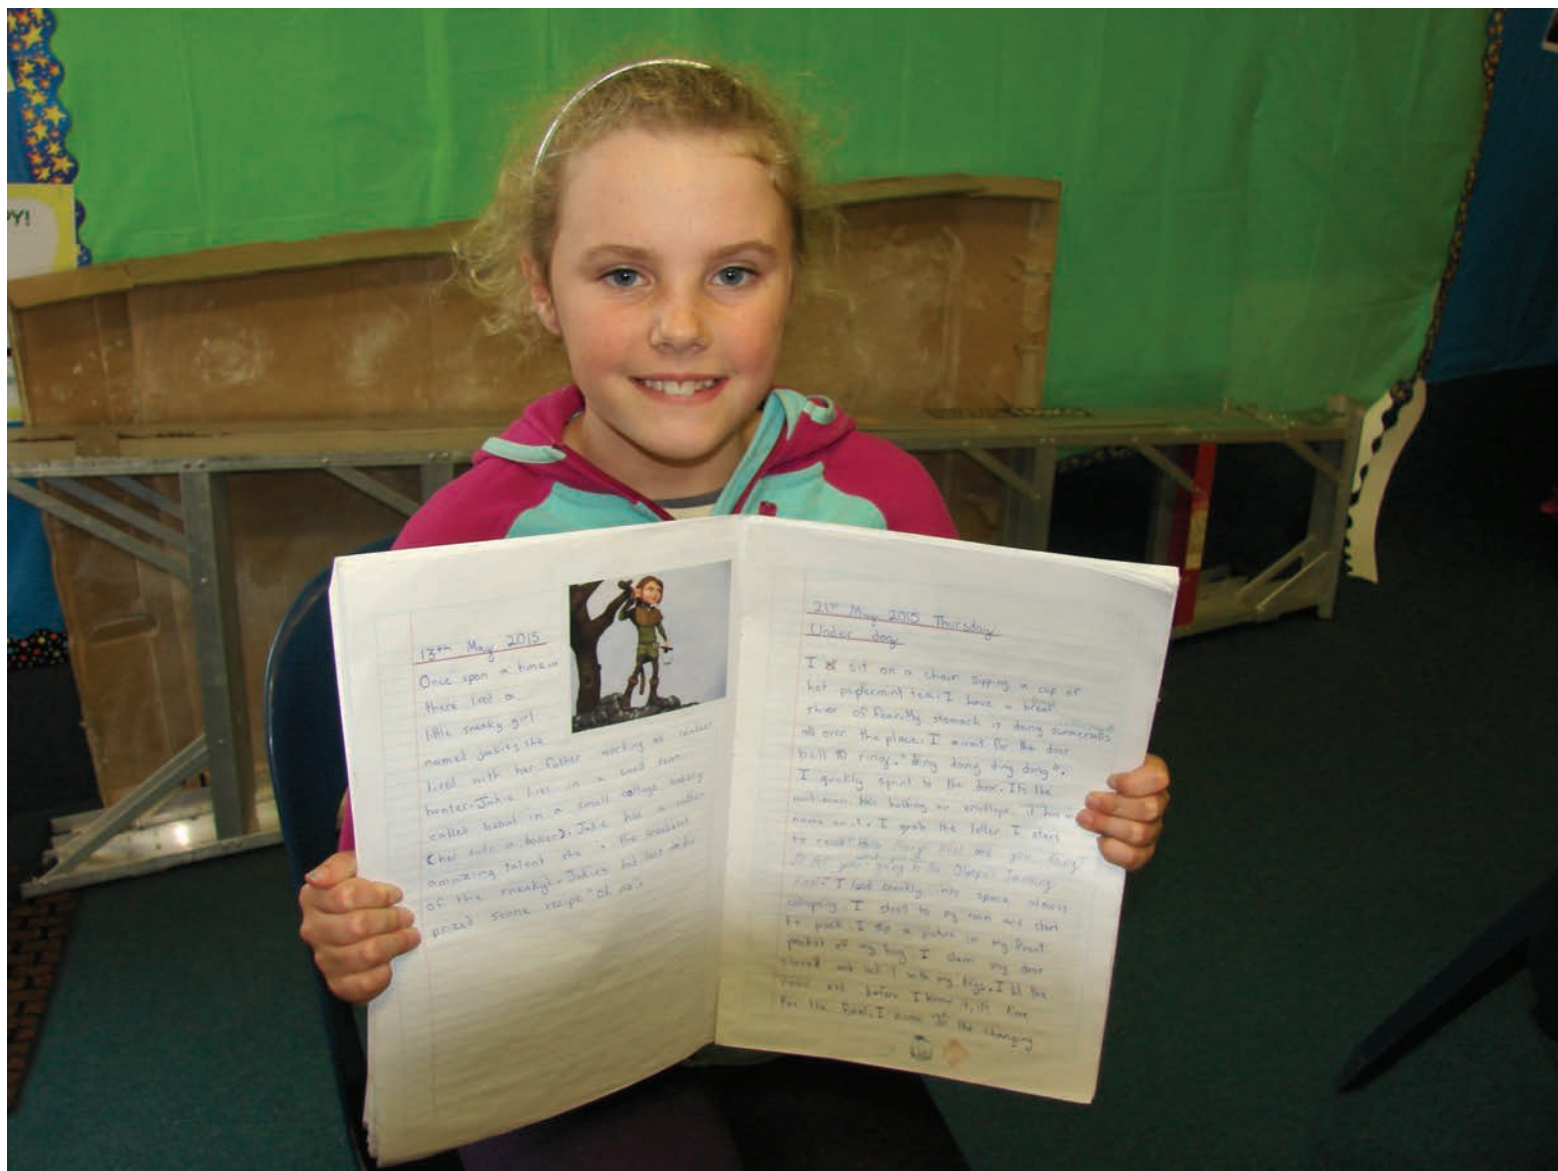 YY!
13th May 2015
Once upon a time
there lived a
little sneaky girl
named jakie, she
lived with her father working as reindeer
hunter. Jakie lives in a small town
called basal in a small cottage
(her dads a baker). Jakie has a rather
amazing talent she is the sneakiest
of the sneaky's. Jakies dad lost his
prized scone recipe "Oh no".
21st May 2015 Thursday
Under dog
I sit on a chair sipping a cup of
hot pepermint tea. I have a
shiver of fear. My stomach is doing summersalts
all over the place. I await for the door
bell to ring. "Ding dong ding dong".
I quickly sprint to the door. Its the
mail man holding an envelope, it has
name on it. I grab the letter I start
to read
are you going to the Olympic
I look blankly into space almost
collapsing I stroll to my room and start
to pack. I zip a picture in my front
pocket of my bag I slam my door
closed and lock it with my keys. I
and before I know it, it's time
for the final. I the changing